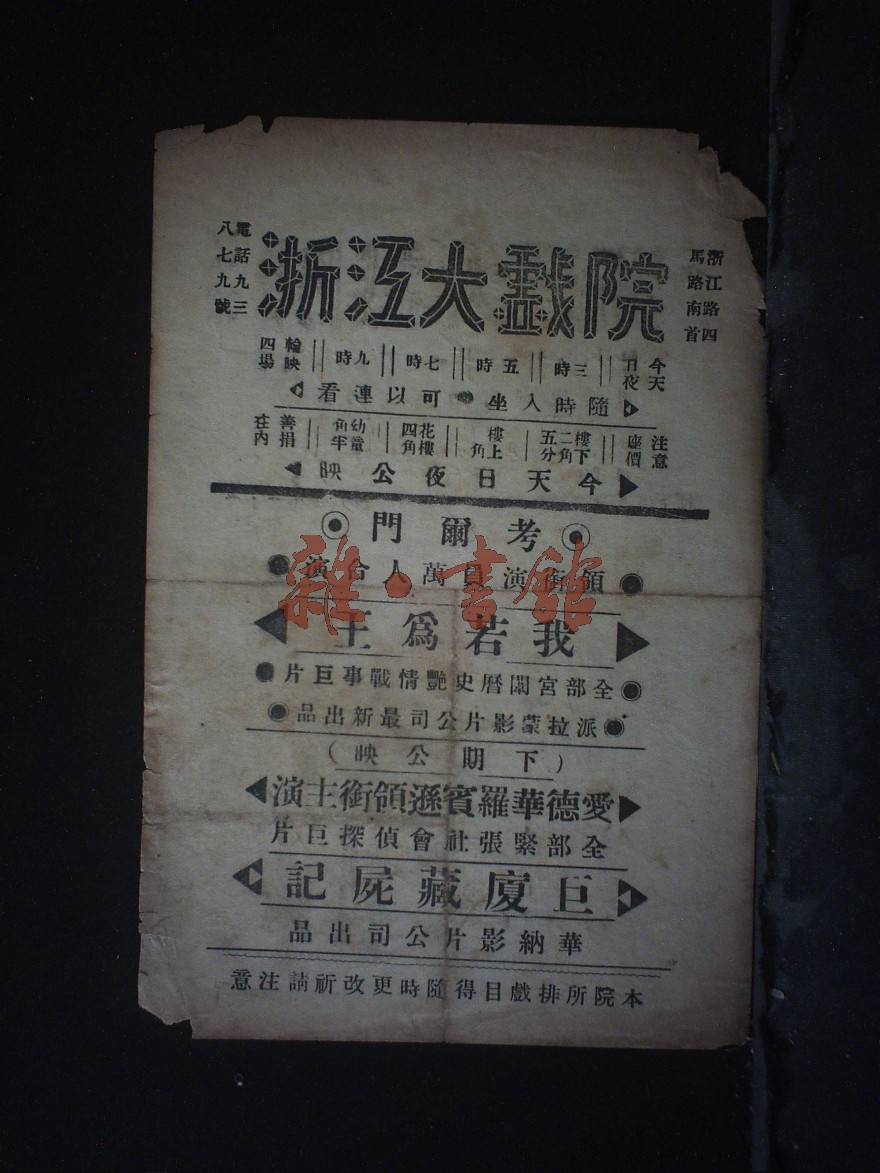 浙江大戲院
浙江路四馬路南首
電話九三八七九號
今天日夜 三時 五時 七時 九時 輪映四場
隨時入坐●可以連看
注意座價 樓下二角五分 樓上角 花樓四角 幼童角半 善捐在內
今天日夜公映
考爾門
領銜演員萬人合演
我若爲王
全部宮闈曆史艷情戰事巨片
派拉蒙影片公司最新出品
(下期公映)
愛德華羅賓遜領銜主演
全部緊張社會偵探巨片
巨廈藏屍記
華納影片公司出品
本院所排戲目得隨時更改祈請注意
雜·書館